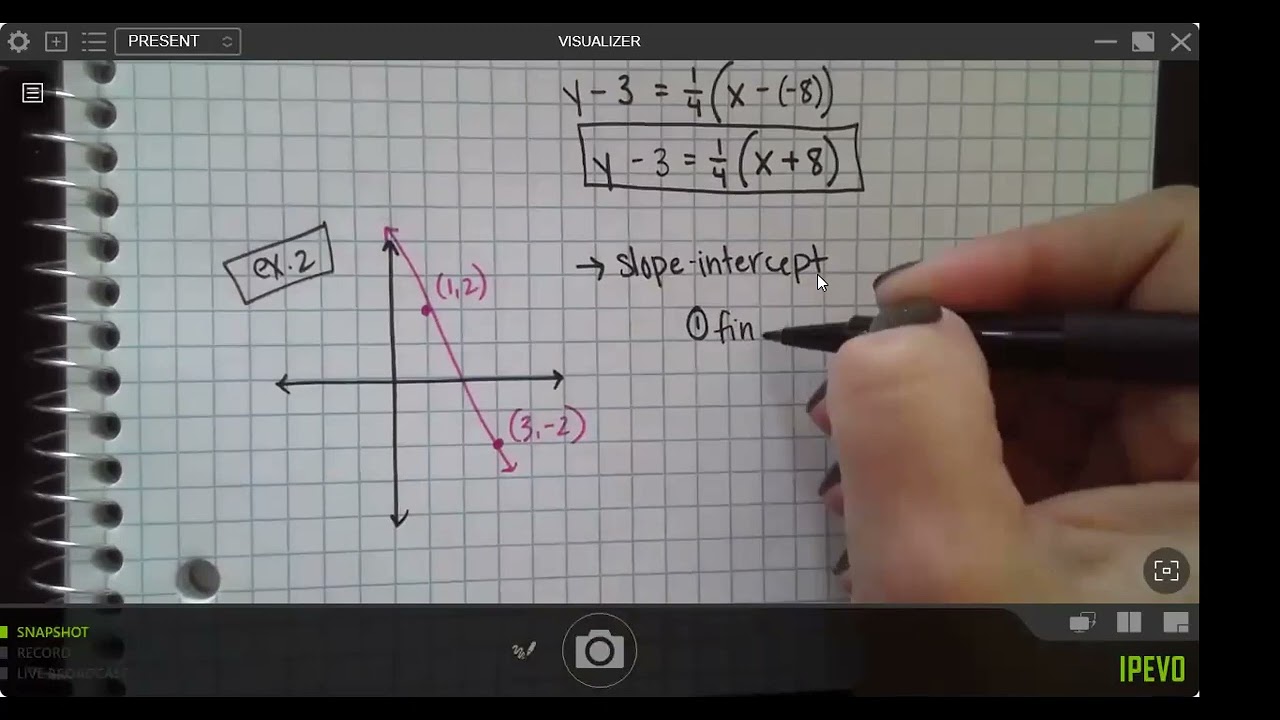 PRESENT
VISUALIZER
y - 3 = 1/4 (x - (-8))
y - 3 = 1/4 (x + 8)
ex. 2
(1,2)
(3,-2)
→ slope-intercept
① fin
SNAPSHOT
RECORD
LIVE BROADCAST
IPEVO